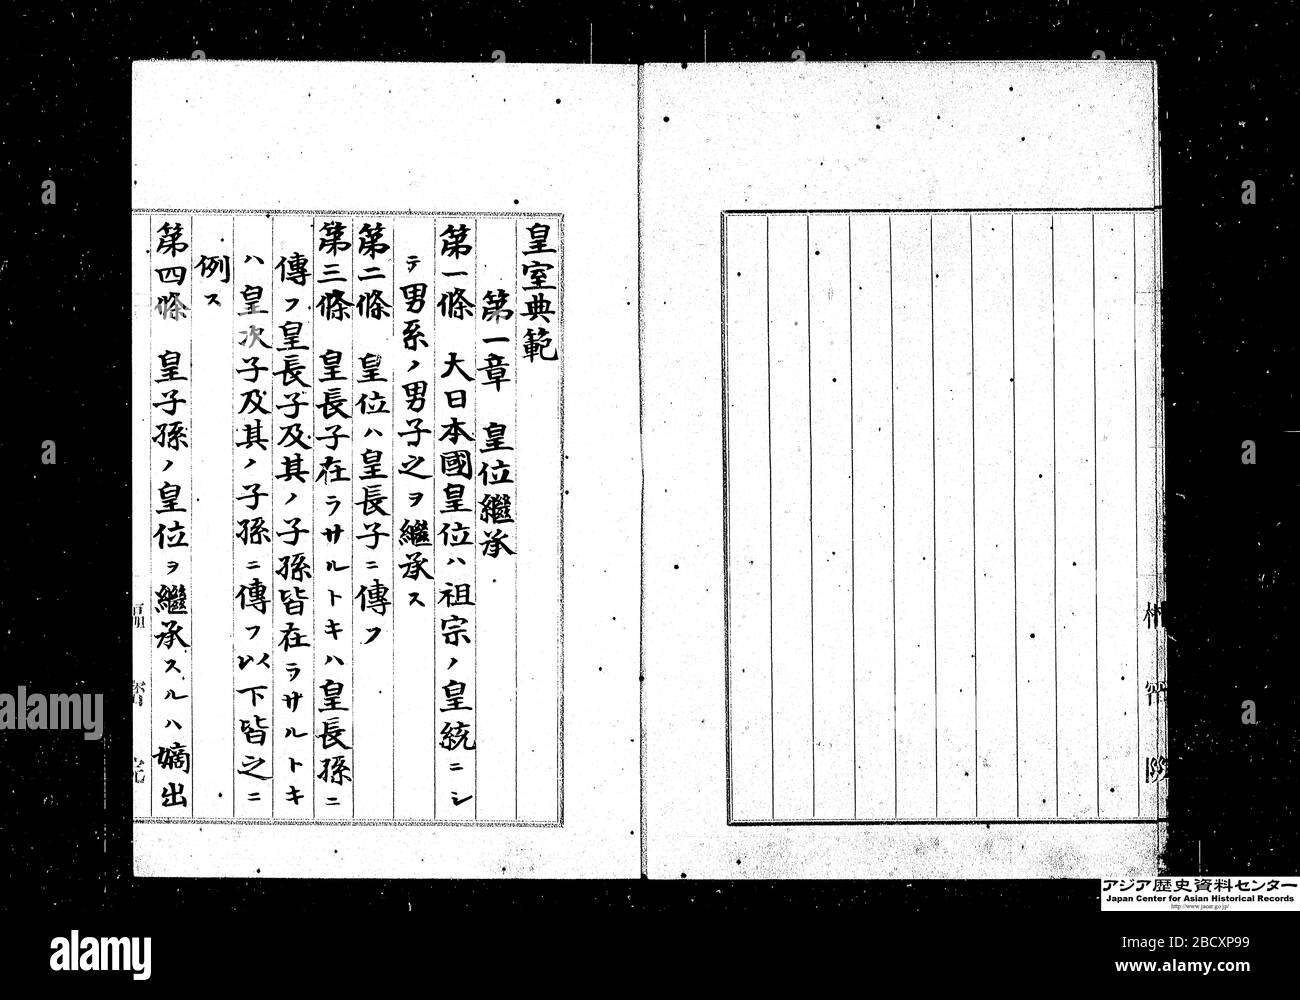 皇室典範
第一章 皇位繼承
第一條 大日本國皇位ハ祖宗ノ皇統ニシ
テ男系ノ男子之ヲ繼承ス
第二條 皇位ハ皇長子ニ傳フ
第三條 皇長子在ラサルトキハ皇長孫ニ
傳フ皇長子及其ノ子孫皆在ラサルトキ
ハ皇次子及其ノ子孫ニ傳フ以下皆之ニ
例ス
第四條 皇子孫ノ皇位ヲ繼承スルハ嫡出
アジア歴史資料センター
Japan Center for Asian Historical Records
http://www.jacar.go.jp/
alamy
alamy
Image ID: 2BCXP99
www.alamy.com